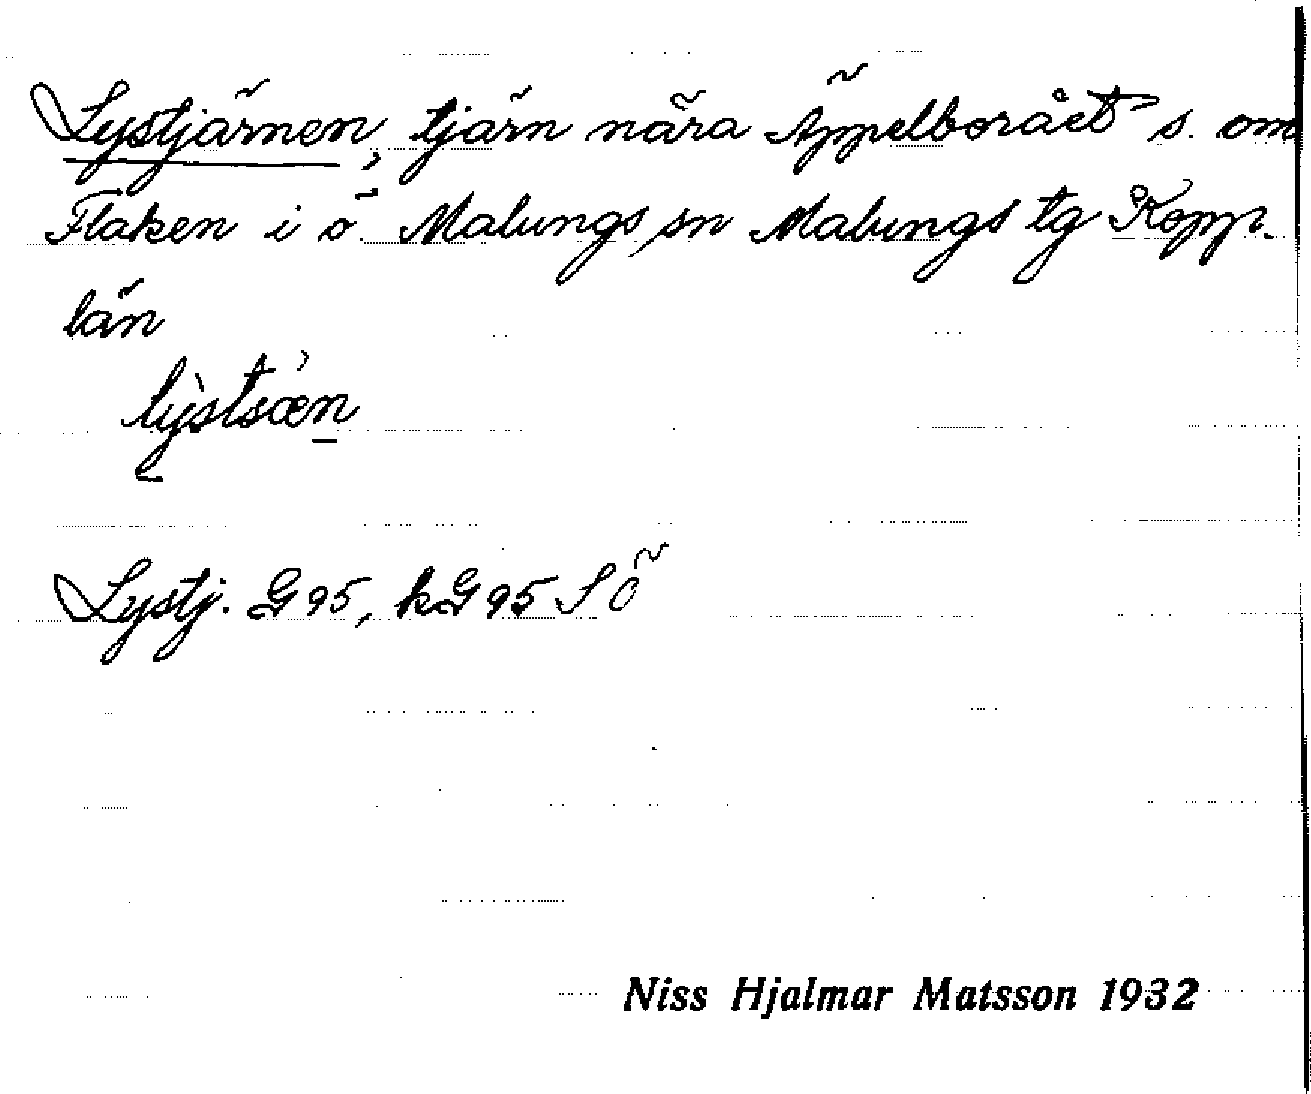 Lystjärnen, tjärn nära Äppelborået s. om
Flaken i ö. Malungs sn Malungs tg Kopp.
län
lỳstsæ̀n
Lystj. G 95, kG 95 S Ö
Niss Hjalmar Matsson 1932